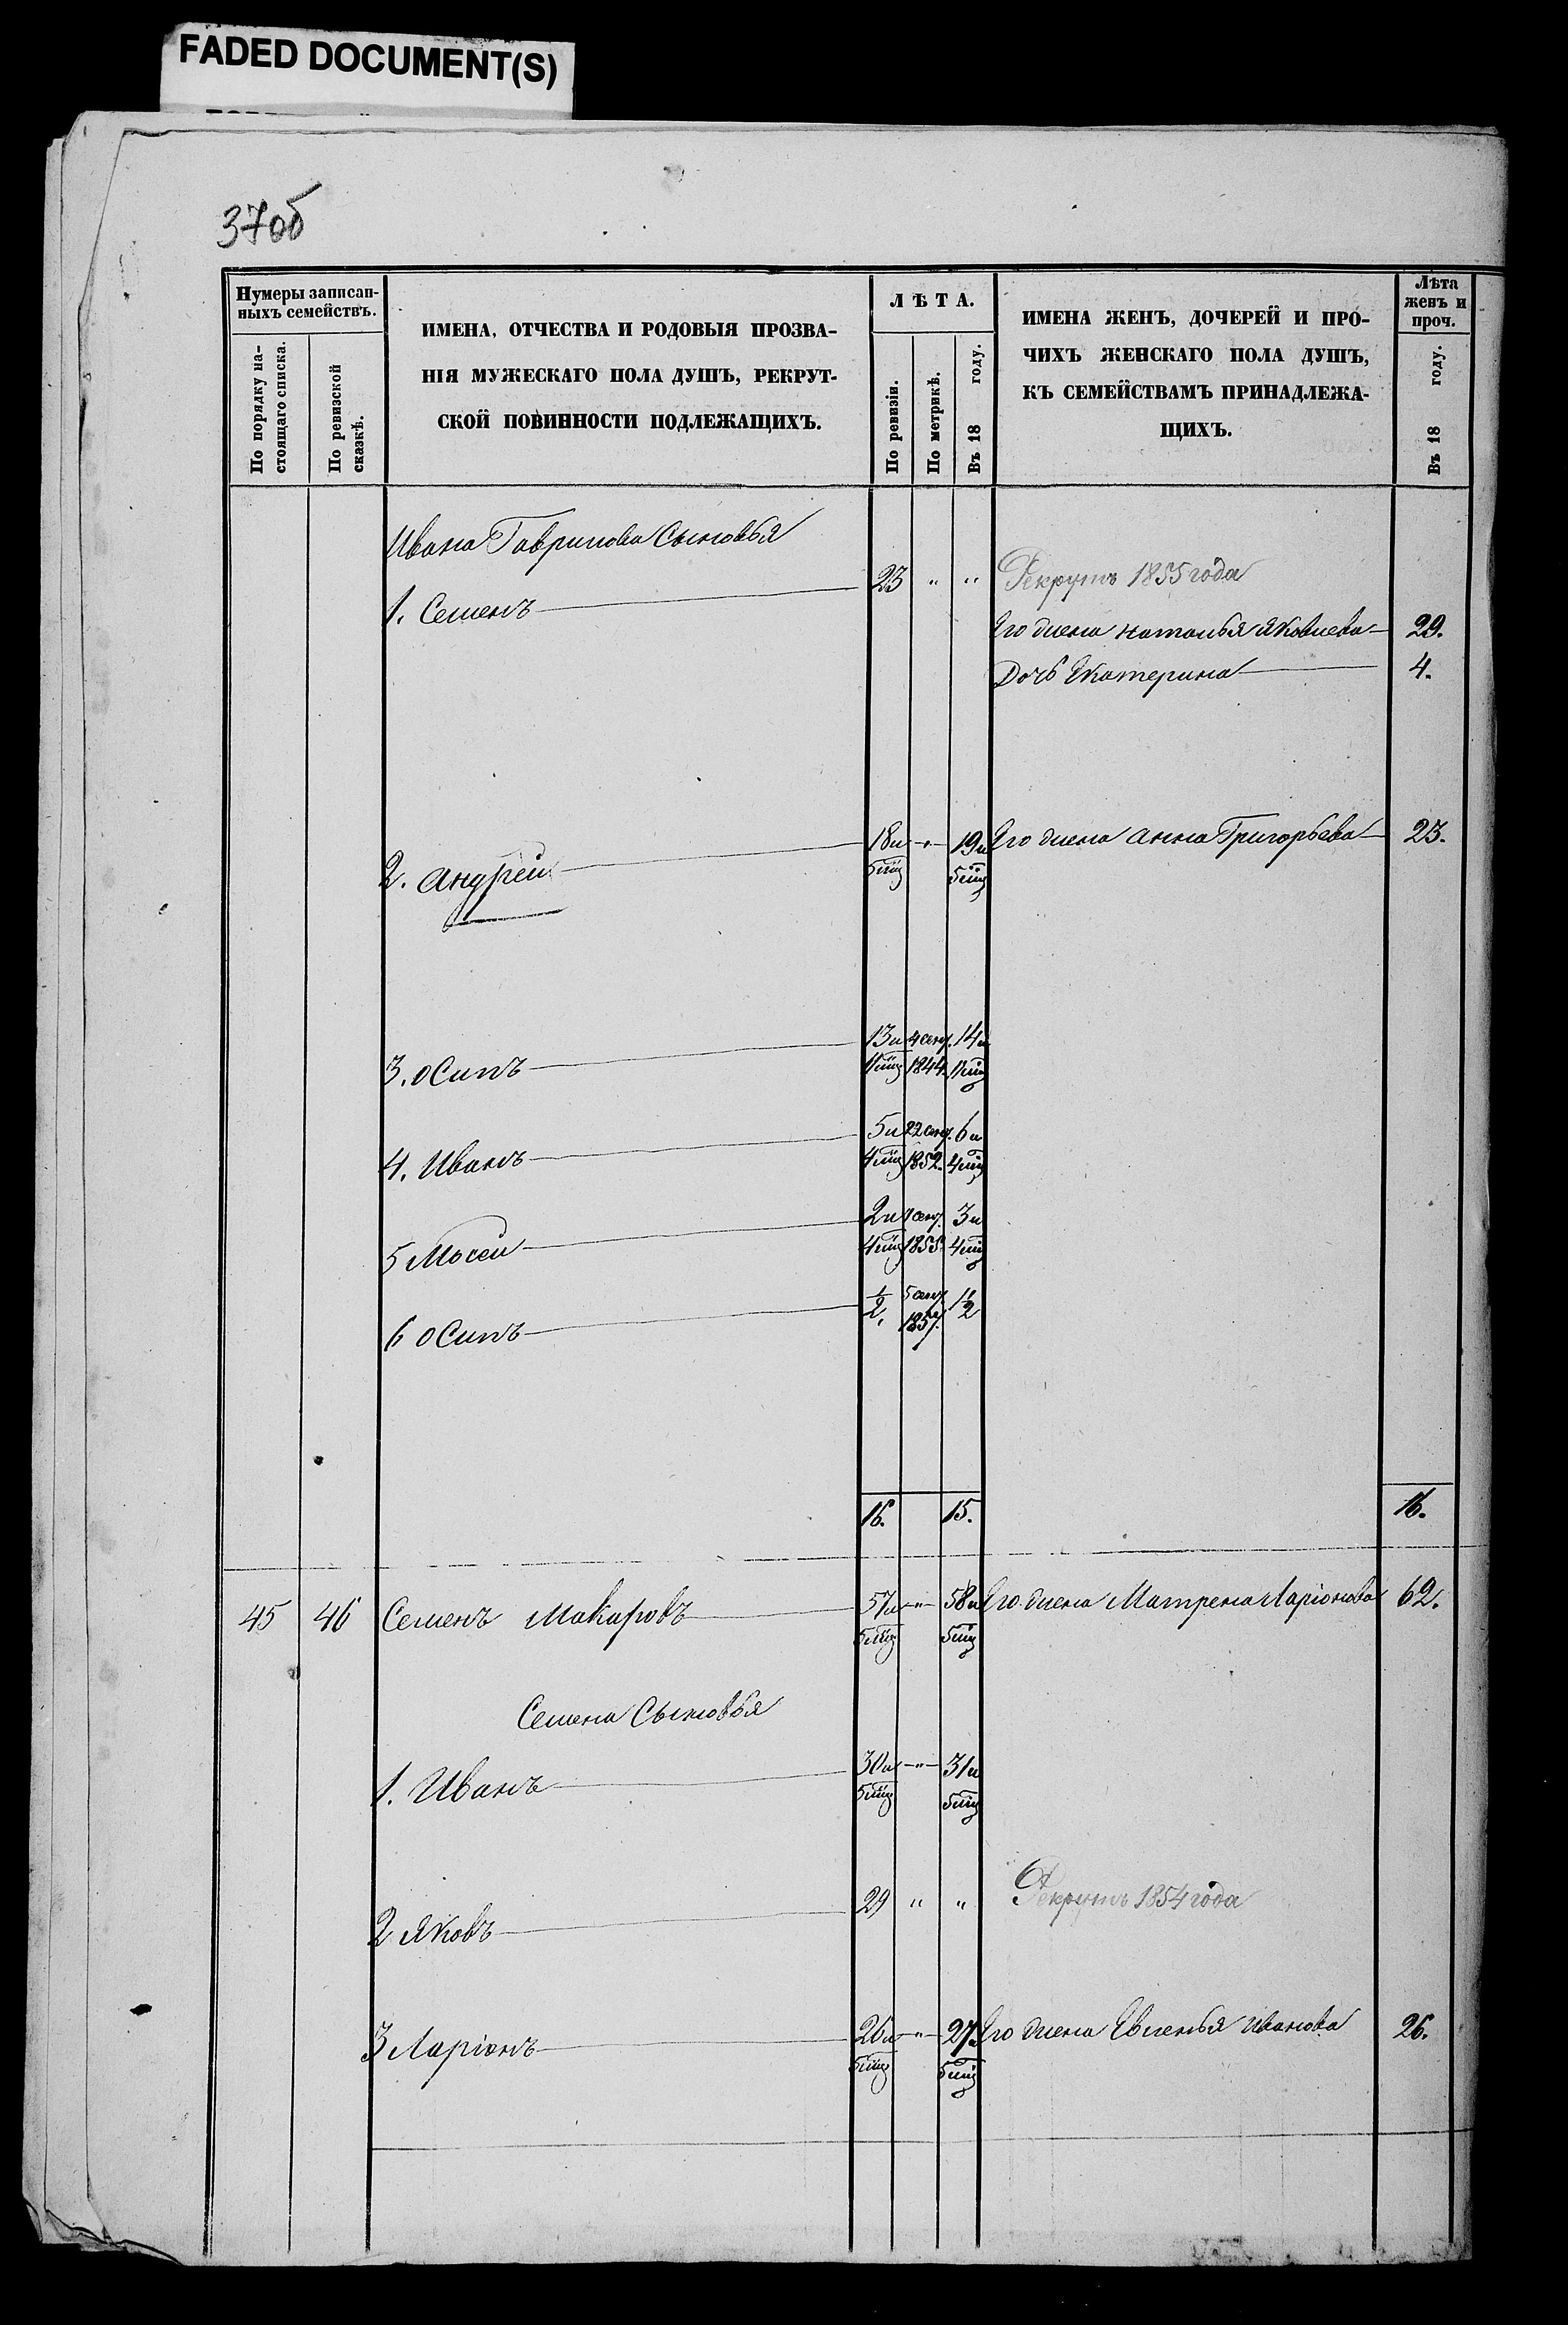 FADED DOCUMENT(S)
37об
Нумеры записан-
ныхъ семействъ.
По порядку на-
стоящаго списка.
По ревизской
сказкѣ.
ИМЕНА, ОТЧЕСТВА И РОДОВЫЯ ПРОЗВА-
НІЯ МУЖЕСКАГО ПОЛА ДУШЪ, РЕКРУТ-
СКОЙ ПОВИННОСТИ ПОДЛЕЖАЩИХЪ.
ЛѢТА.
По ревизіи.
По метрикѣ.
Въ 18 году.
ИМЕНА ЖЕНЪ, ДОЧЕРЕЙ И ПРО-
ЧИХЪ ЖЕНСКАГО ПОЛА ДУШЪ,
КЪ СЕМЕЙСТВАМЪ ПРИНАДЛЕЖА-
ЩИХЪ.
Лѣта
женъ и
проч.
Въ 18 году.
Ивана Гаврилова Сыновья
1. Семенъ 23 " " Рекрутъ 1855 года
Его жена Наталья Яковлева 29.
Дочь Екатерина 4.
2. Андрей 18 и " 19 и Его жена Анна Григорьева 23.
5 мц 5 мц
3. Осипъ 13 и 4 сент. 14 и
4 мц 1844. 4 мц
4. Иванъ 5 и 22 сент. 6 и
4 мц 1852. 4 мц
5 Мосей 2 и 1 сент. 3 и
4 мц 1855. 4 мц
6 Осипъ 1/2. 5 сент. 1 1/2
1857.
16. 15. 16.
45 46 Семенъ Макаровъ 57 и " 58 и Его жена Матрена Ларіонова 62.
5 мц 5 мц
Семена Сыновья
1. Иванъ 30 и " 31 и
5 мц 5 мц
2 Яковъ 29 " " Рекрутъ 1854 года
3 Ларіонъ 26 и " 27 и Его жена Евленья Иванова 26.
5 мц 5 мц